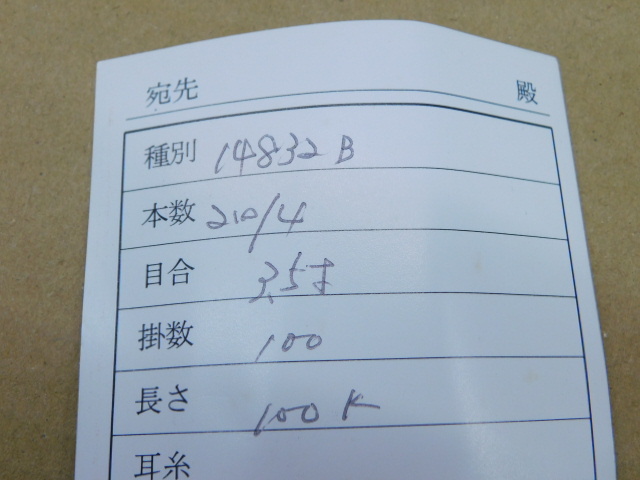 宛先 殿
種別 14832 B
本数 210/4
目合 3.5寸
掛数 100
長さ 100K
耳糸